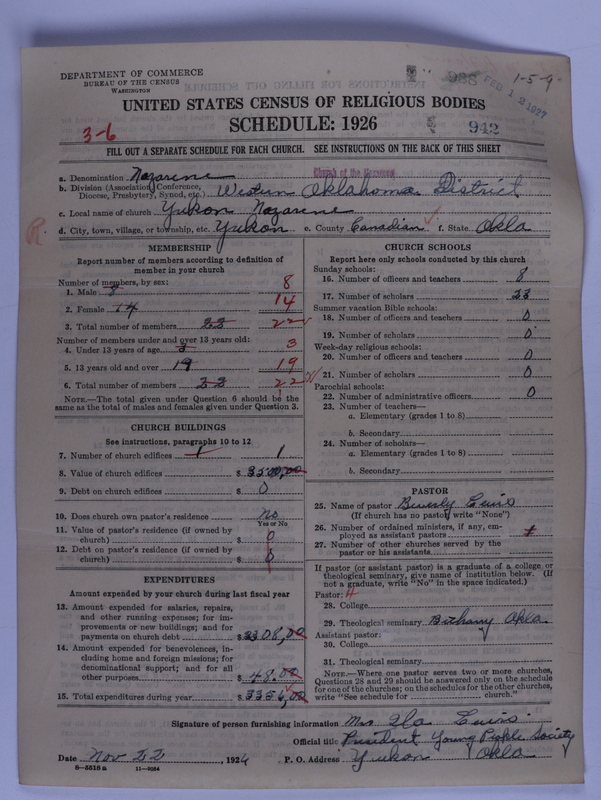 DEPARTMENT OF COMMERCE
BUREAU OF THE CENSUS
WASHINGTON
988 FEB 12 1927 1-5-9
UNITED STATES CENSUS OF RELIGIOUS BODIES
SCHEDULE: 1926
3-6
942
FILL OUT A SEPARATE SCHEDULE FOR EACH CHURCH. SEE INSTRUCTIONS ON THE BACK OF THIS SHEET
Church of the Nazarene
a. Denomination Nazarene
b. Division (Association, Conference, Diocese, Presbytery, Synod, etc.) Western Oklahoma District
c. Local name of church Yukon Nazarene
R.
d. City, town, village, or township, etc. Yukon e. County Canadian f. State Okla
MEMBERSHIP
Report number of members according to definition of
member in your church
Number of members, by sex:
1. Male 8 8
2. Female 14 14
3. Total number of members 22 22
Number of members under and over 13 years old:
4. Under 13 years of age 3 3
5. 13 years old and over 19 19
6. Total number of members 22 22
NOTE.—The total given under Question 6 should be the
same as the total of males and females given under Question 3.
CHURCH BUILDINGS
See instructions, paragraphs 10 to 12
7. Number of church edifices 1 1
8. Value of church edifices $ 3500,00
9. Debt on church edifices $ 0
10. Does church own pastor's residence No
Yes or No
11. Value of pastor's residence (if owned by
church) $ 0
12. Debt on pastor's residence (if owned by
church) $ 0
EXPENDITURES
Amount expended by your church during last fiscal year
13. Amount expended for salaries, repairs,
and other running expenses; for im-
provements or new buildings; and for
payments on church debt $ 3308,00
14. Amount expended for benevolences, in-
cluding home and foreign missions; for
denominational support; and for all
other purposes $ 48.00
15. Total expenditures during year $ 3356,00
CHURCH SCHOOLS
Report here only schools conducted by this church
Sunday schools:
16. Number of officers and teachers 8
17. Number of scholars 33
Summer vacation Bible schools:
18. Number of officers and teachers 0
19. Number of scholars 0
Week-day religious schools:
20. Number of officers and teachers 0
21. Number of scholars 0
Parochial schools:
22. Number of administrative officers 0
23. Number of teachers—
a. Elementary (grades 1 to 8)
b. Secondary
24. Number of scholars—
a. Elementary (grades 1 to 8)
b. Secondary
PASTOR
25. Name of pastor Beverly Lewis
(If church has no pastor, write "None")
26. Number of ordained ministers, if any, em-
ployed as assistant pastors
27. Number of other churches served by the
pastor or his assistants
If pastor (or assistant pastor) is a graduate of a college or
theological seminary, give name of institution below. (If
not a graduate, write "No" in the space indicated.)
Pastor:
28. College
29. Theological seminary Bethany Okla
Assistant pastor:
30. College
31. Theological seminary
NOTE.—Where one pastor serves two or more churches,
Questions 28 and 29 should be answered only on the schedule
for one of the churches; on the schedules for the other churches,
write "See schedule for church."
Signature of person furnishing information Mrs Ila Lewis
Official title President Young People Society
Date Nov 22, 1926 P. O. Address Yukon Okla
8—5518 a 11—9064